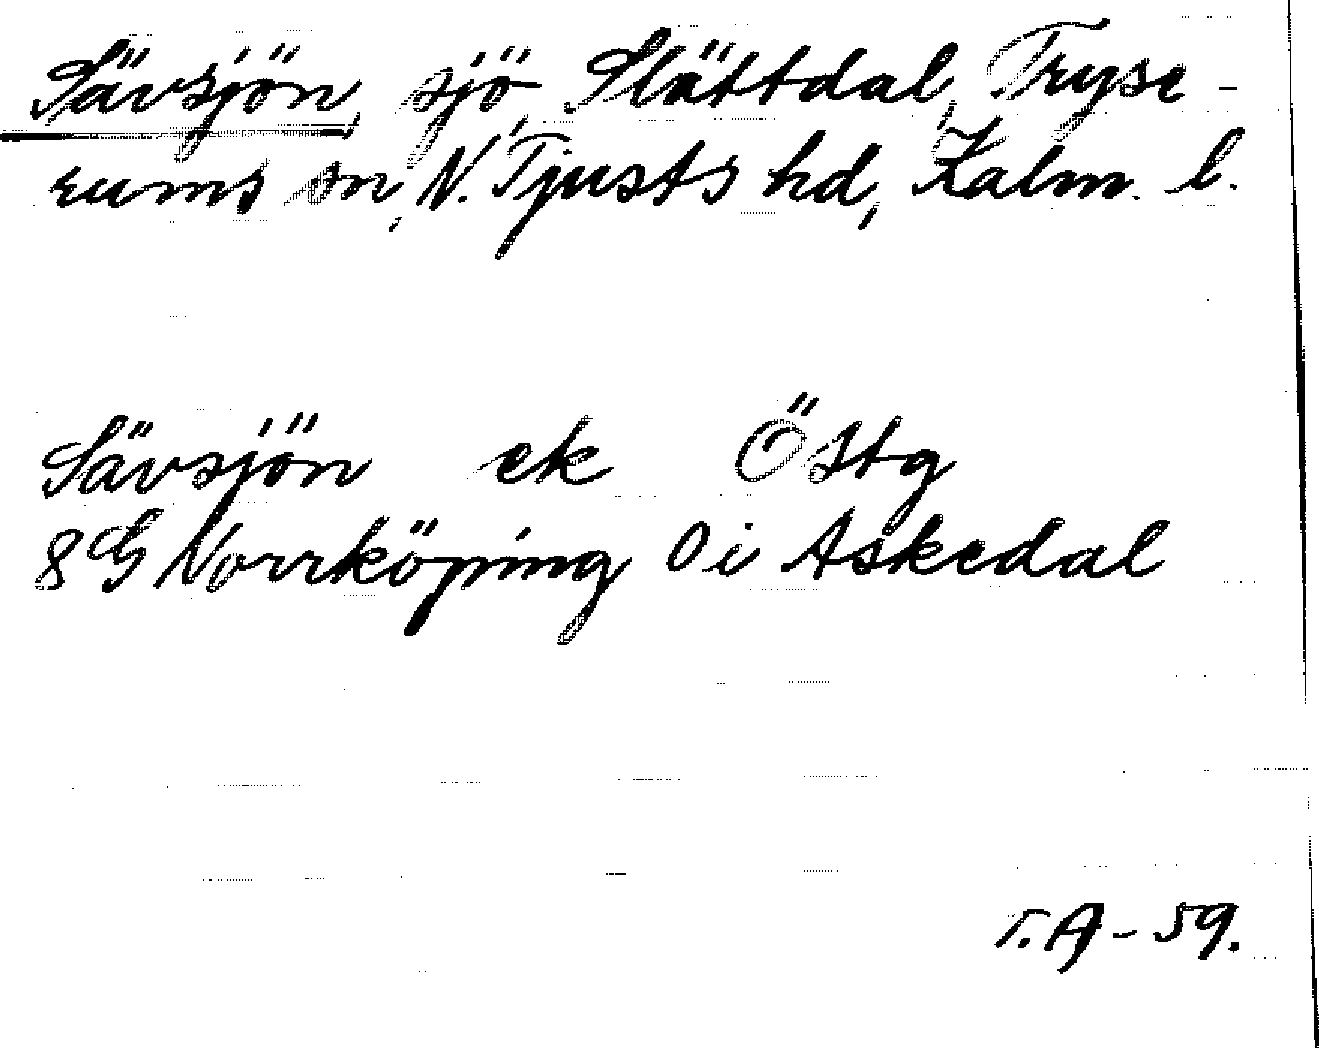 Sävsjön, sjö, Slättdal, Tryse-
rums sn, N. Tjusts hd, Kalm. l.
Sävsjön ek Östg
8G Norrköping O i Askedal
T.A-59.